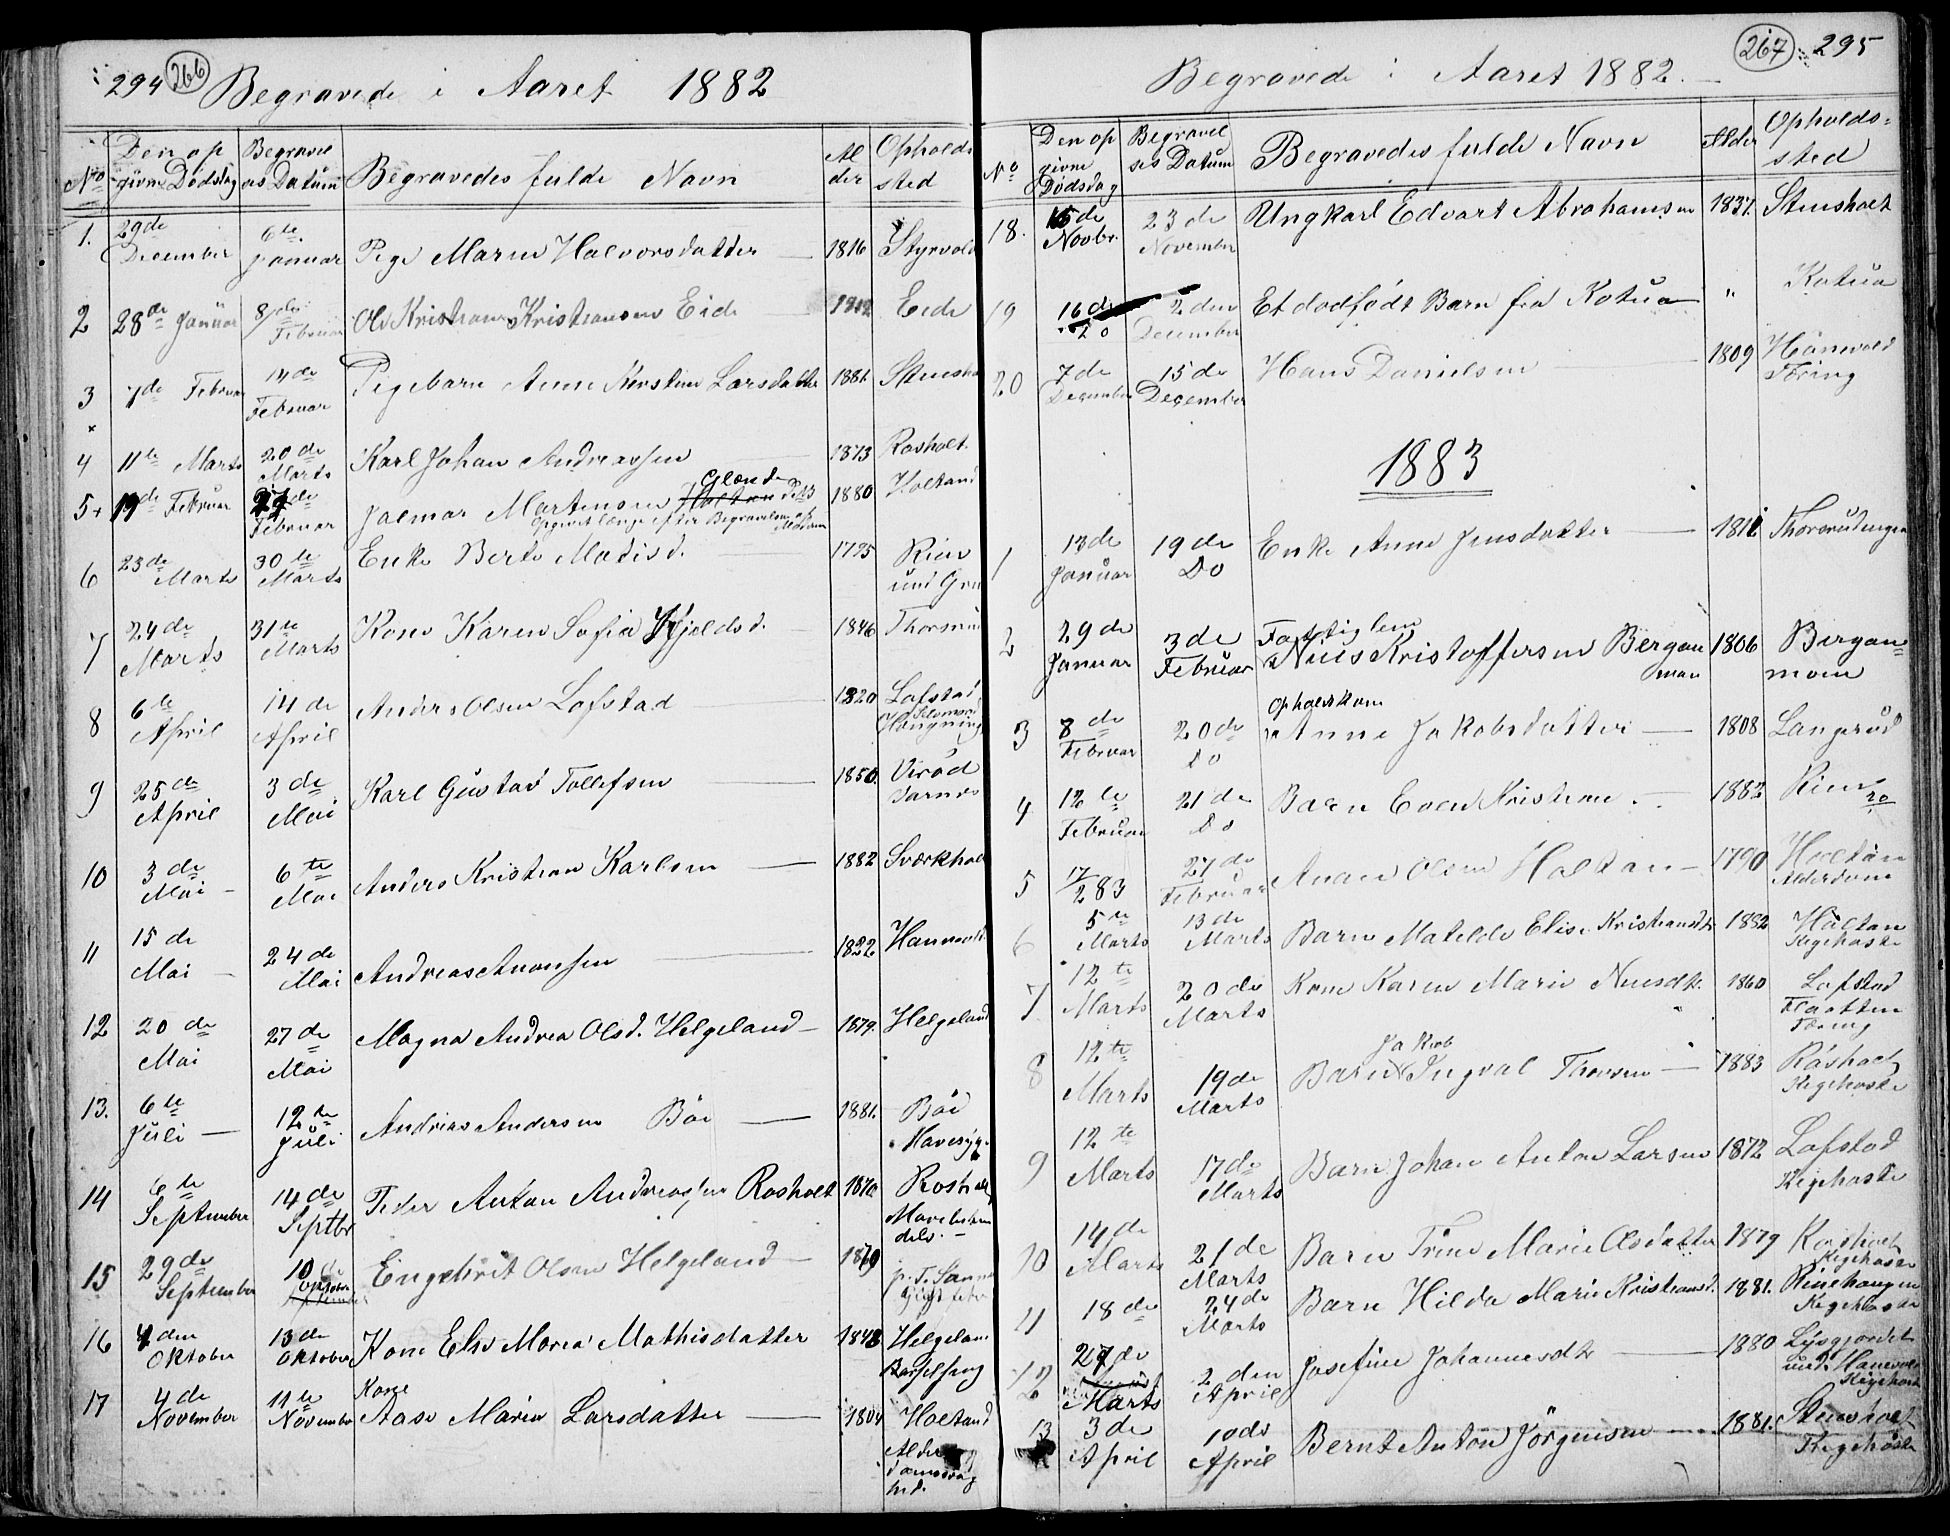 294 266 Begravede i Aaret 1882
No Den op givne Dødsdag Begravel ses Datum Begravedes fulde Navn Al der Opholds sted
1. 29de December 6te Januar Pige Maren Halvorsdatter 1816 Styrvold
2 28de Januar 8de Februar Ole Kristian Kristiansen Eide Eide
3 7de Februar 14de Februar Pigebarn Anne Kirstine Larsdatter 1881 Stensho
4 11te Marts 20de Marts Karl Johan Andreassen 1873 Rosholt
5 + 19de Februar 27de Februar Jalmar Martensen Holtan 1880 Holtand
opgivet længe efter Begravelsen af Moderen
6 23de Marts 30te Marts Enke Berte Madisd. 1795 Rien und Gru
7 24de Marts 31te Marts Kone Karen Sofia Kjeldsd. 1846
8 6te April 14de April Anders Olsen Lofstad 1820 Lofstad
9 25de April 3de Mai Karl Gustav Tollefsen 1850
10 3de Mai 6te Mai Anders Kristian Karlsen 1882 Sværkhol
11 15de Mai 24de Mai Andreas Aronsen 1822 Hannevold
12 20de Mai 27de Mai Magna Andrea Olsd. Helgeland 1879. Helgeland
13. 6te Juli 12te Juli Andreas Andersen Böe 1881. Böe Mavesyge
14 6te September 14de Septbr Peder Anton Andreassen Rosholt 1870 Roshol
15 29de September 10de Oktober Engebrit Olsen Helgeland 1879 p. T. Sann
16 4den Oktober 13de Oktober Kone Else Maria Mathisdatter 1848 Helgelan
17 4de November 11te November Kone Aase Maria Larsdatter 1804 Holtand Alder domssvag hed.
267 295
Begravede i Aaret 1882.
No Den op givne Dødsdag Begravel ses Datum Begravedes fulde Navn Alder Opholds= sted
18. 15de Novbr. 23de November Ungkarl Edvart Abrahamsen 1837. Stensholt
19 16de Do 2den December Et dødfødt Barn fra Kotua " Kotua
20 7de December 15de December Hans Danielsen 1809 Hanevold Tæring
1883
1 13de Januar 19de Do Enke Anne Jensdatter
2 29de Januar 3de Februar Fattiglem Niels Kristoffersen Bergan moen 1806 Bergan= moen
3 8de Februar 20de Do Opholdskone Anne Jakobsdatter 1808 Langerød
4 12te Februar 21de Do Barn Even Kristian 1882 Rien
5 17/2 83 27de Februar Olsen Holtan 1790 Holtan Alderdom
6 5te Marts 13de Marts Barn Matilde Elise Kristiansdtr 1882 Holtan Kighoste
7 12te Marts 20de Marts Kone Karen Marie Nilsdtr. 1860 Lofstad Tæring
8 12te Marts 19de Marts Barn Jakob Ingval Thorsen 1883 Rosholt Kigehoste
9 12te Marts 17de Marts Barn Johan Anton Larsen 1872 Lofstad Kigehoste
10 14de Marts 21de Marts Barn Trine Marie Olsdatter 1879 Rosholt Kigehoste
11 18de 24de Marts Barn Hilda Marie Kristiansd. 1881. Rinehaugen Kighoste
12 27de Marts 2den April Josefine Johannesdtr 1880 Lysgjordet und. Hanevold Kigehoste
13 3de April 10de April Bernt Anton Jörgensen 1881. Stensholt Kigehoste